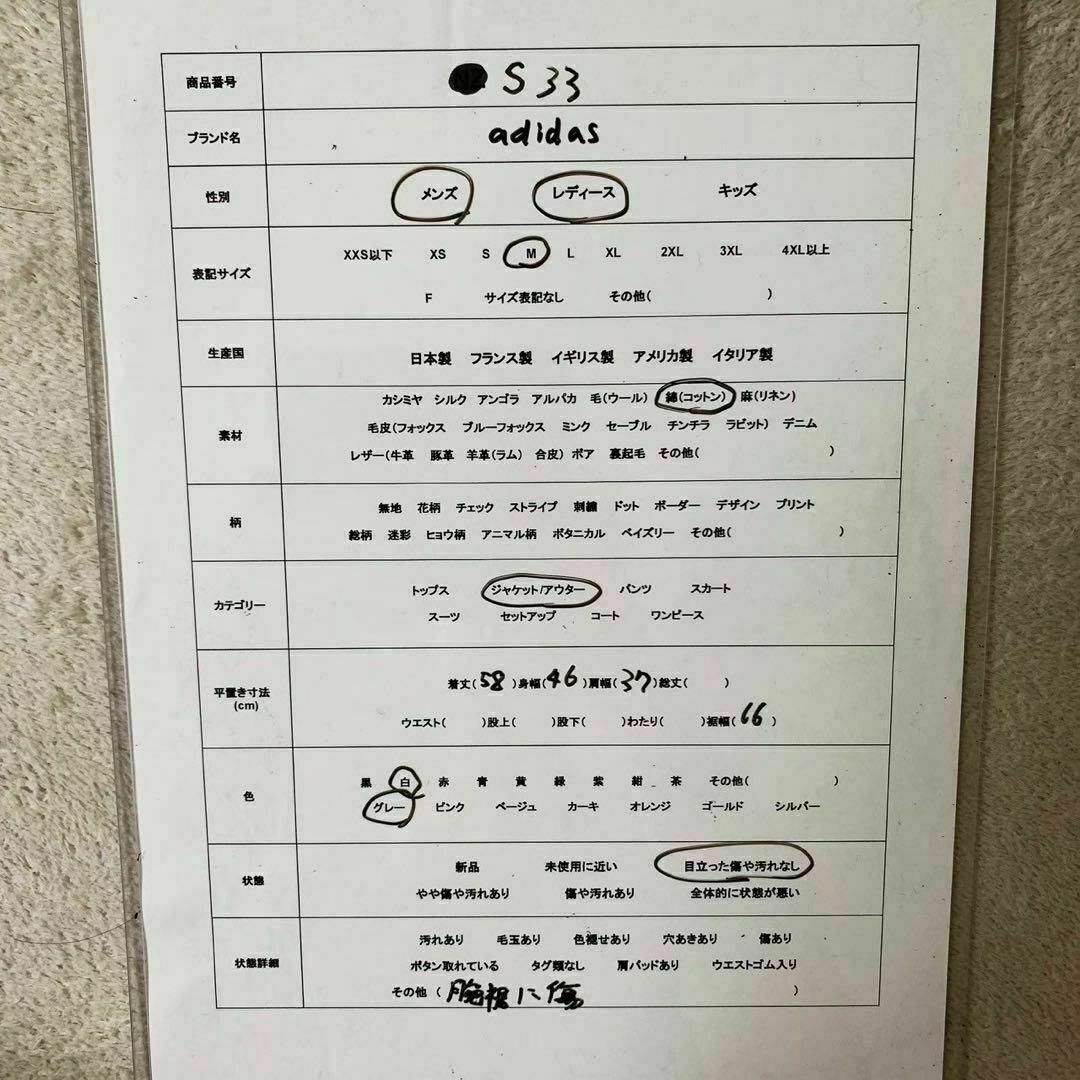 商品番号 S 33
ブランド名 adidas
性別 メンズ レディース キッズ
XXS以下 XS S M L XL 2XL 3XL 4XL以上
表記サイズ
F サイズ表記なし その他( )
生産国 日本製 フランス製 イギリス製 アメリカ製 イタリア製
カシミヤ シルク アンゴラ アルパカ 毛(ウール) 綿(コットン) 麻(リネン)
素材 毛皮(フォックス ブルーフォックス ミンク セーブル チンチラ ラビット) デニム
レザー(牛革 豚革 羊革(ラム) 合皮) ボア 裏起毛 その他( )
無地 花柄 チェック ストライプ 刺繍 ドット ボーダー デザイン プリント
柄
総柄 迷彩 ヒョウ柄 アニマル柄 ボタニカル ペイズリー その他( )
トップス ジャケット/アウター パンツ スカート
カテゴリー
スーツ セットアップ コート ワンピース
着丈(58)身幅(46)肩幅(37)総丈( )
平置き寸法
(cm)
ウエスト( )股上( )股下( )わたり( )裾幅( )
黒 白 赤 青 黄 緑 紫 紺 茶 その他( )
色
グレー ピンク ベージュ カーキ オレンジ ゴールド シルバー
新品 未使用に近い 目立った傷や汚れなし
状態
やや傷や汚れあり 傷や汚れあり 全体的に状態が悪い
汚れあり 毛玉あり 色褪せあり 穴あきあり 傷あり
状態詳細 ボタン取れている タグ類なし 肩パッドあり ウエストゴム入り
その他 ( に傷 )